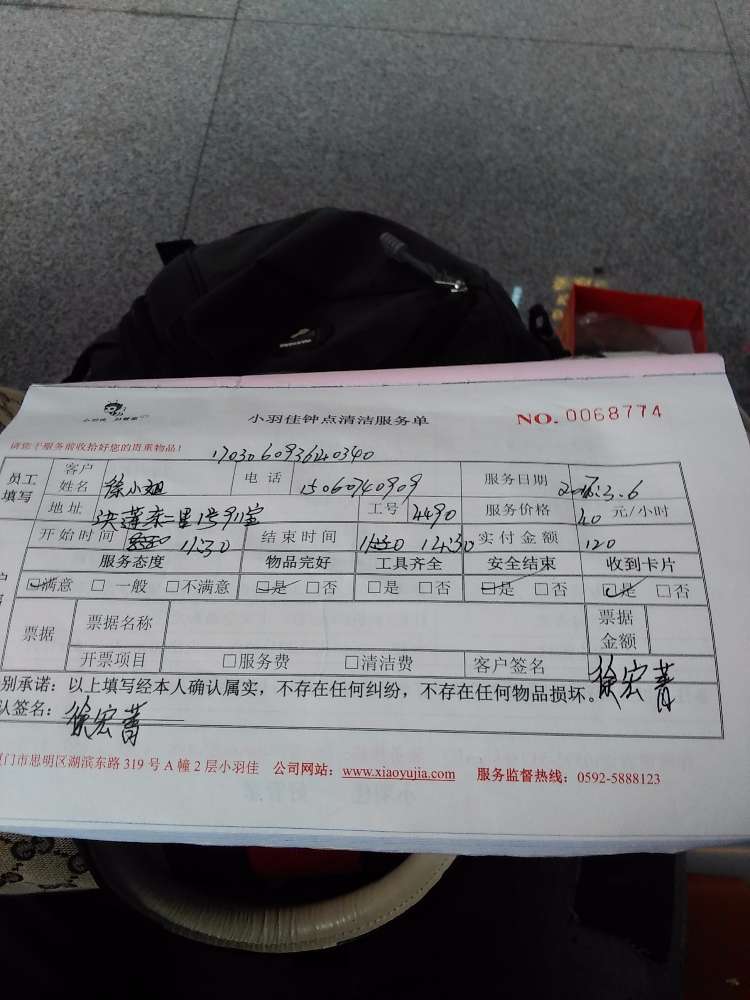 小羽佳钟点清洁服务单 NO. 0068774
请您于服务前收拾好您的贵重物品！
员工填写 客户姓名 徐小姐 电话 15060740909 服务日期 3.6
地址 工号 4490 服务价格 40 元/小时
开始时间 11:30 结束时间 14:30 实付金额 120
服务态度 物品完好 工具齐全 安全结束 收到卡片
☑满意 □ 一般 □不满意 ☑是 □否 □是 □否 ☑是 □否 ☑是 □否
票据 票据名称 票据金额
开票项目 □服务费 □清洁费 客户签名 徐宏菁
别承诺：以上填写经本人确认属实，不存在任何纠纷，不存在任何物品损坏。
认签名：徐宏菁
门市思明区湖滨东路 319 号 A 幢 2 层小羽佳 公司网站：www.xiaoyujia.com 服务监督热线：0592-5888123